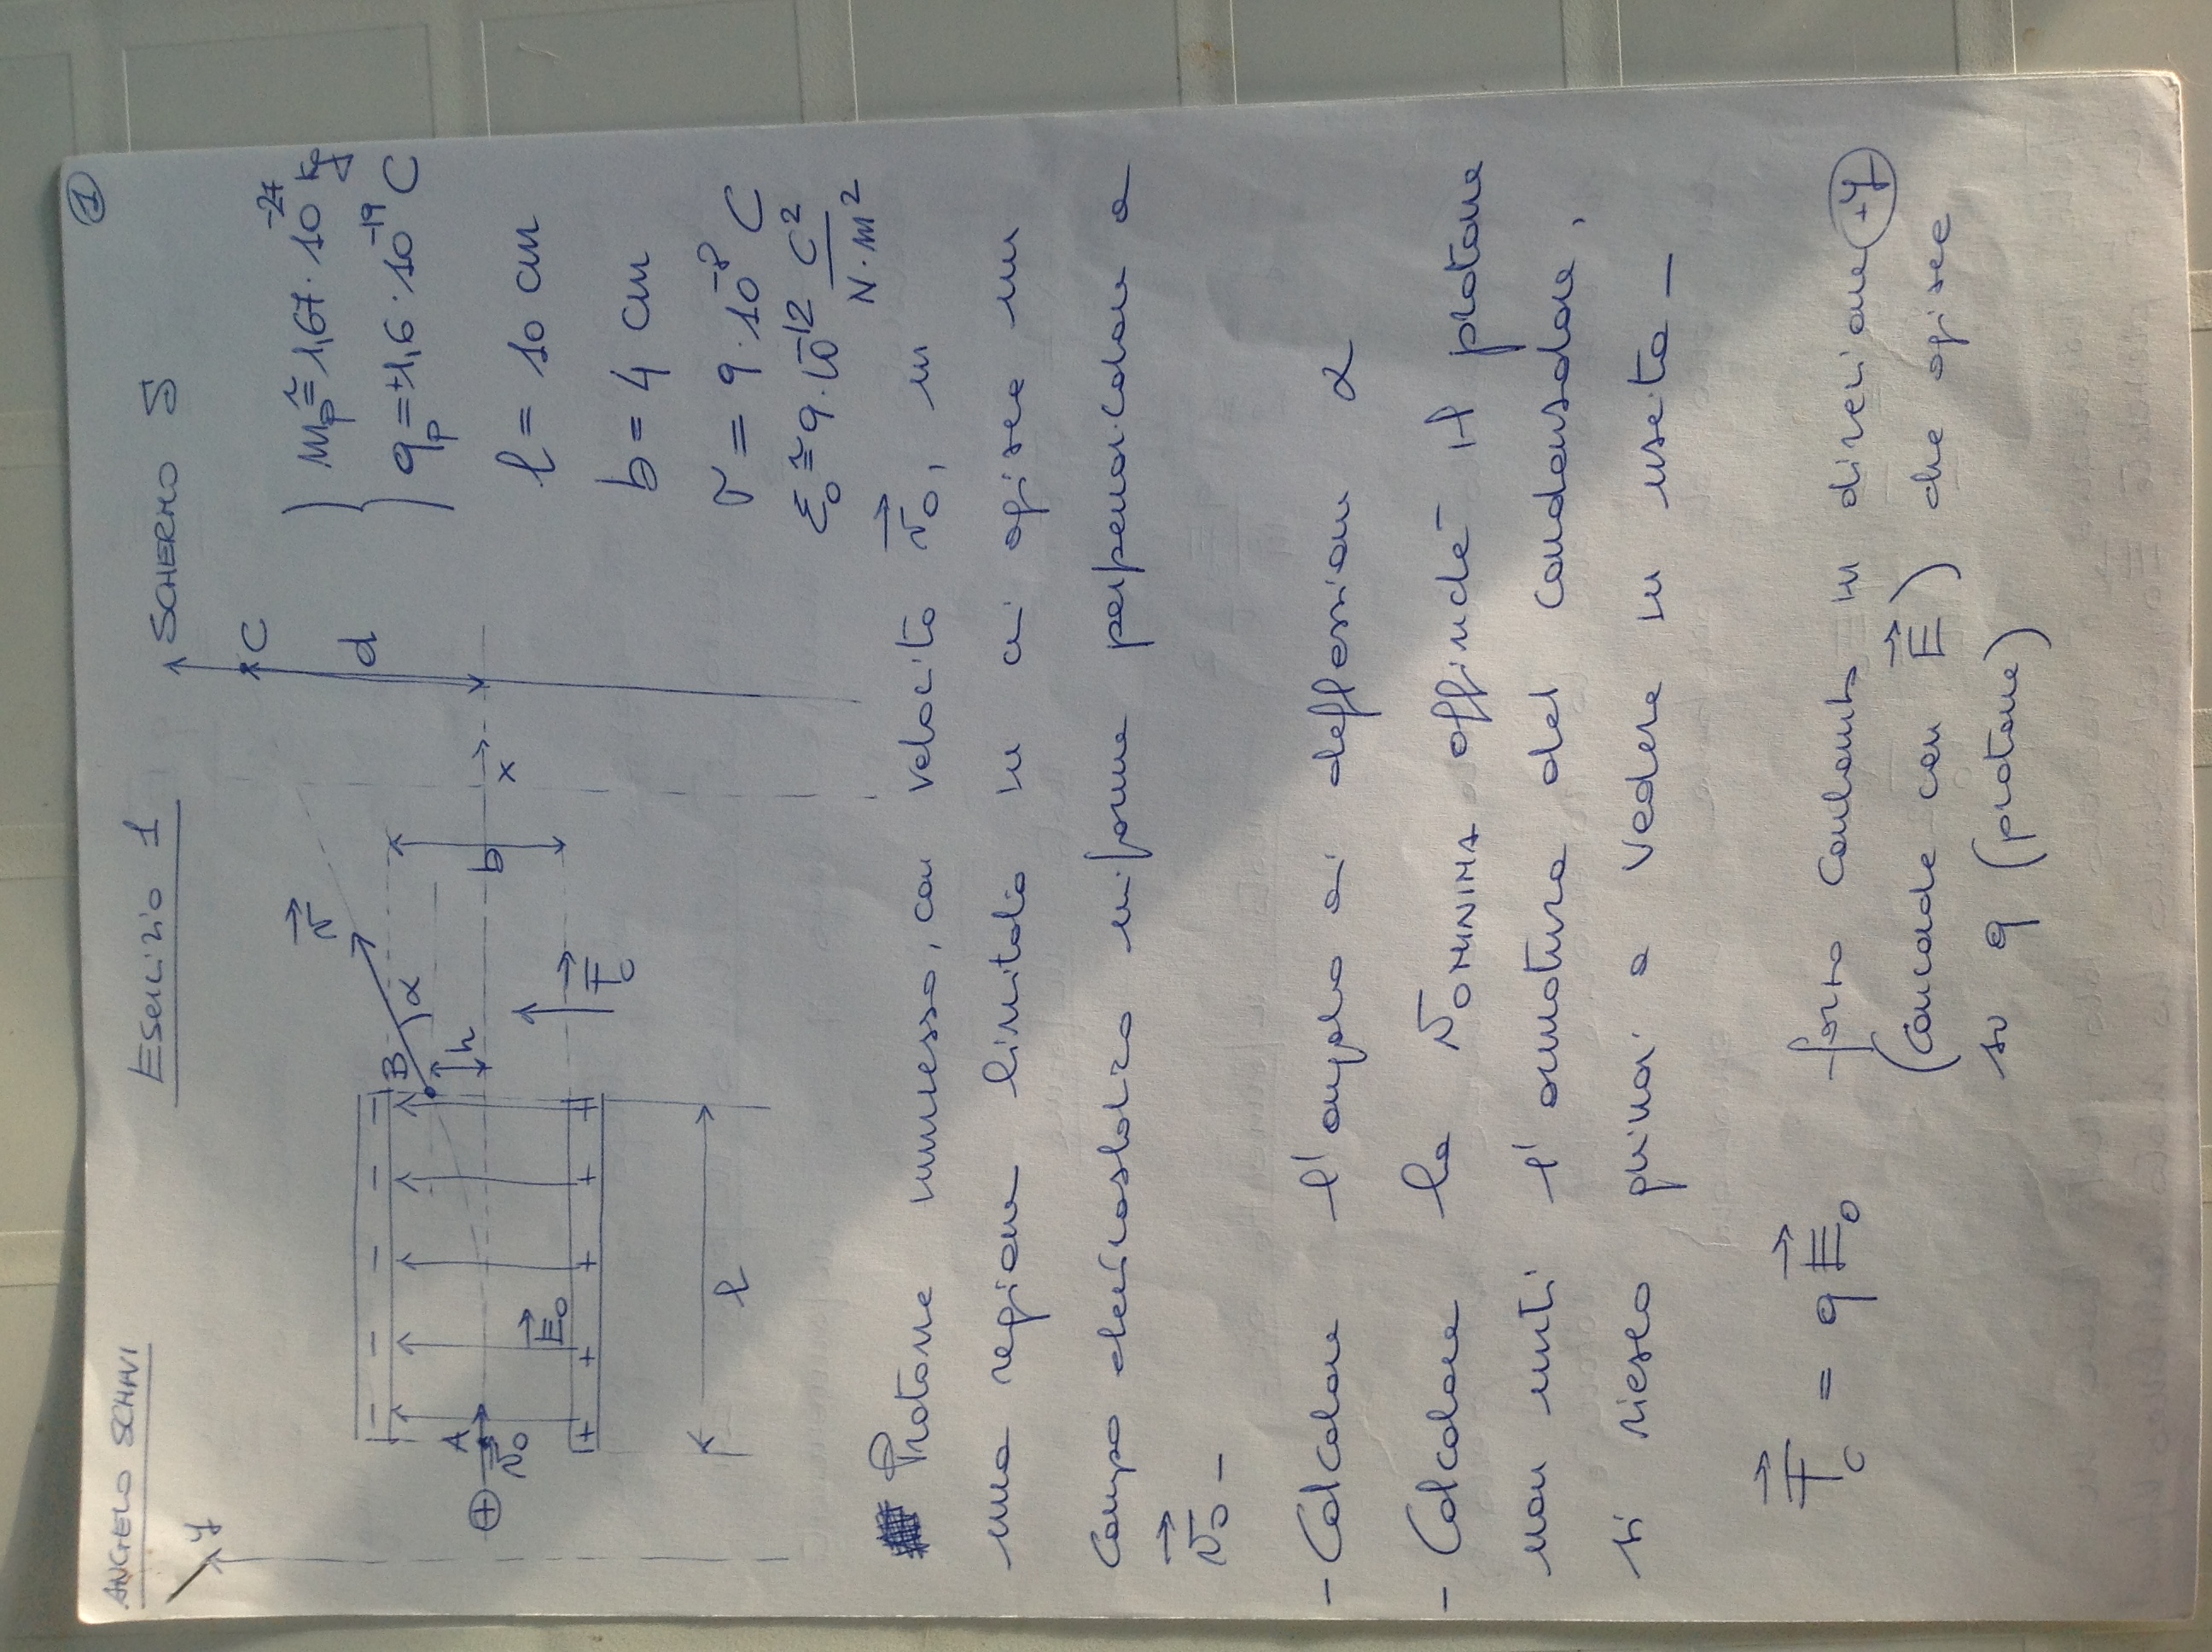 1
ANGELO SCHIVI
Esercizio 1
SCHERMO S
y
C
v
d
- - - - -
B
α
A
h
+
v₀
b
x
E₀
+ + + + +
F_c
l
m_p ≅ 1,67 · 10⁻²⁷ kg
q_p = +1,6 · 10⁻¹⁹ C
l = 10 cm
b = 4 cm
σ = 9 · 10⁻⁸ C
ε₀ ≅ 9 · 10⁻¹² C² / N · m²
Protone immesso, con velocità v₀, in
una regione limitata in cui agisce un
campo elettrostatico uniforme perpendicolare a
v₀ -
- Calcolare l'angolo di deflessione α
- Calcolare la v₀MINIMA affinché il protone
non urti l'armatura del condensatore,
si riesca quindi a vedere in uscita -
F_c = q E₀ forza Coulomb in direzione +y
(concorde con E) che agisce
su q (protone)